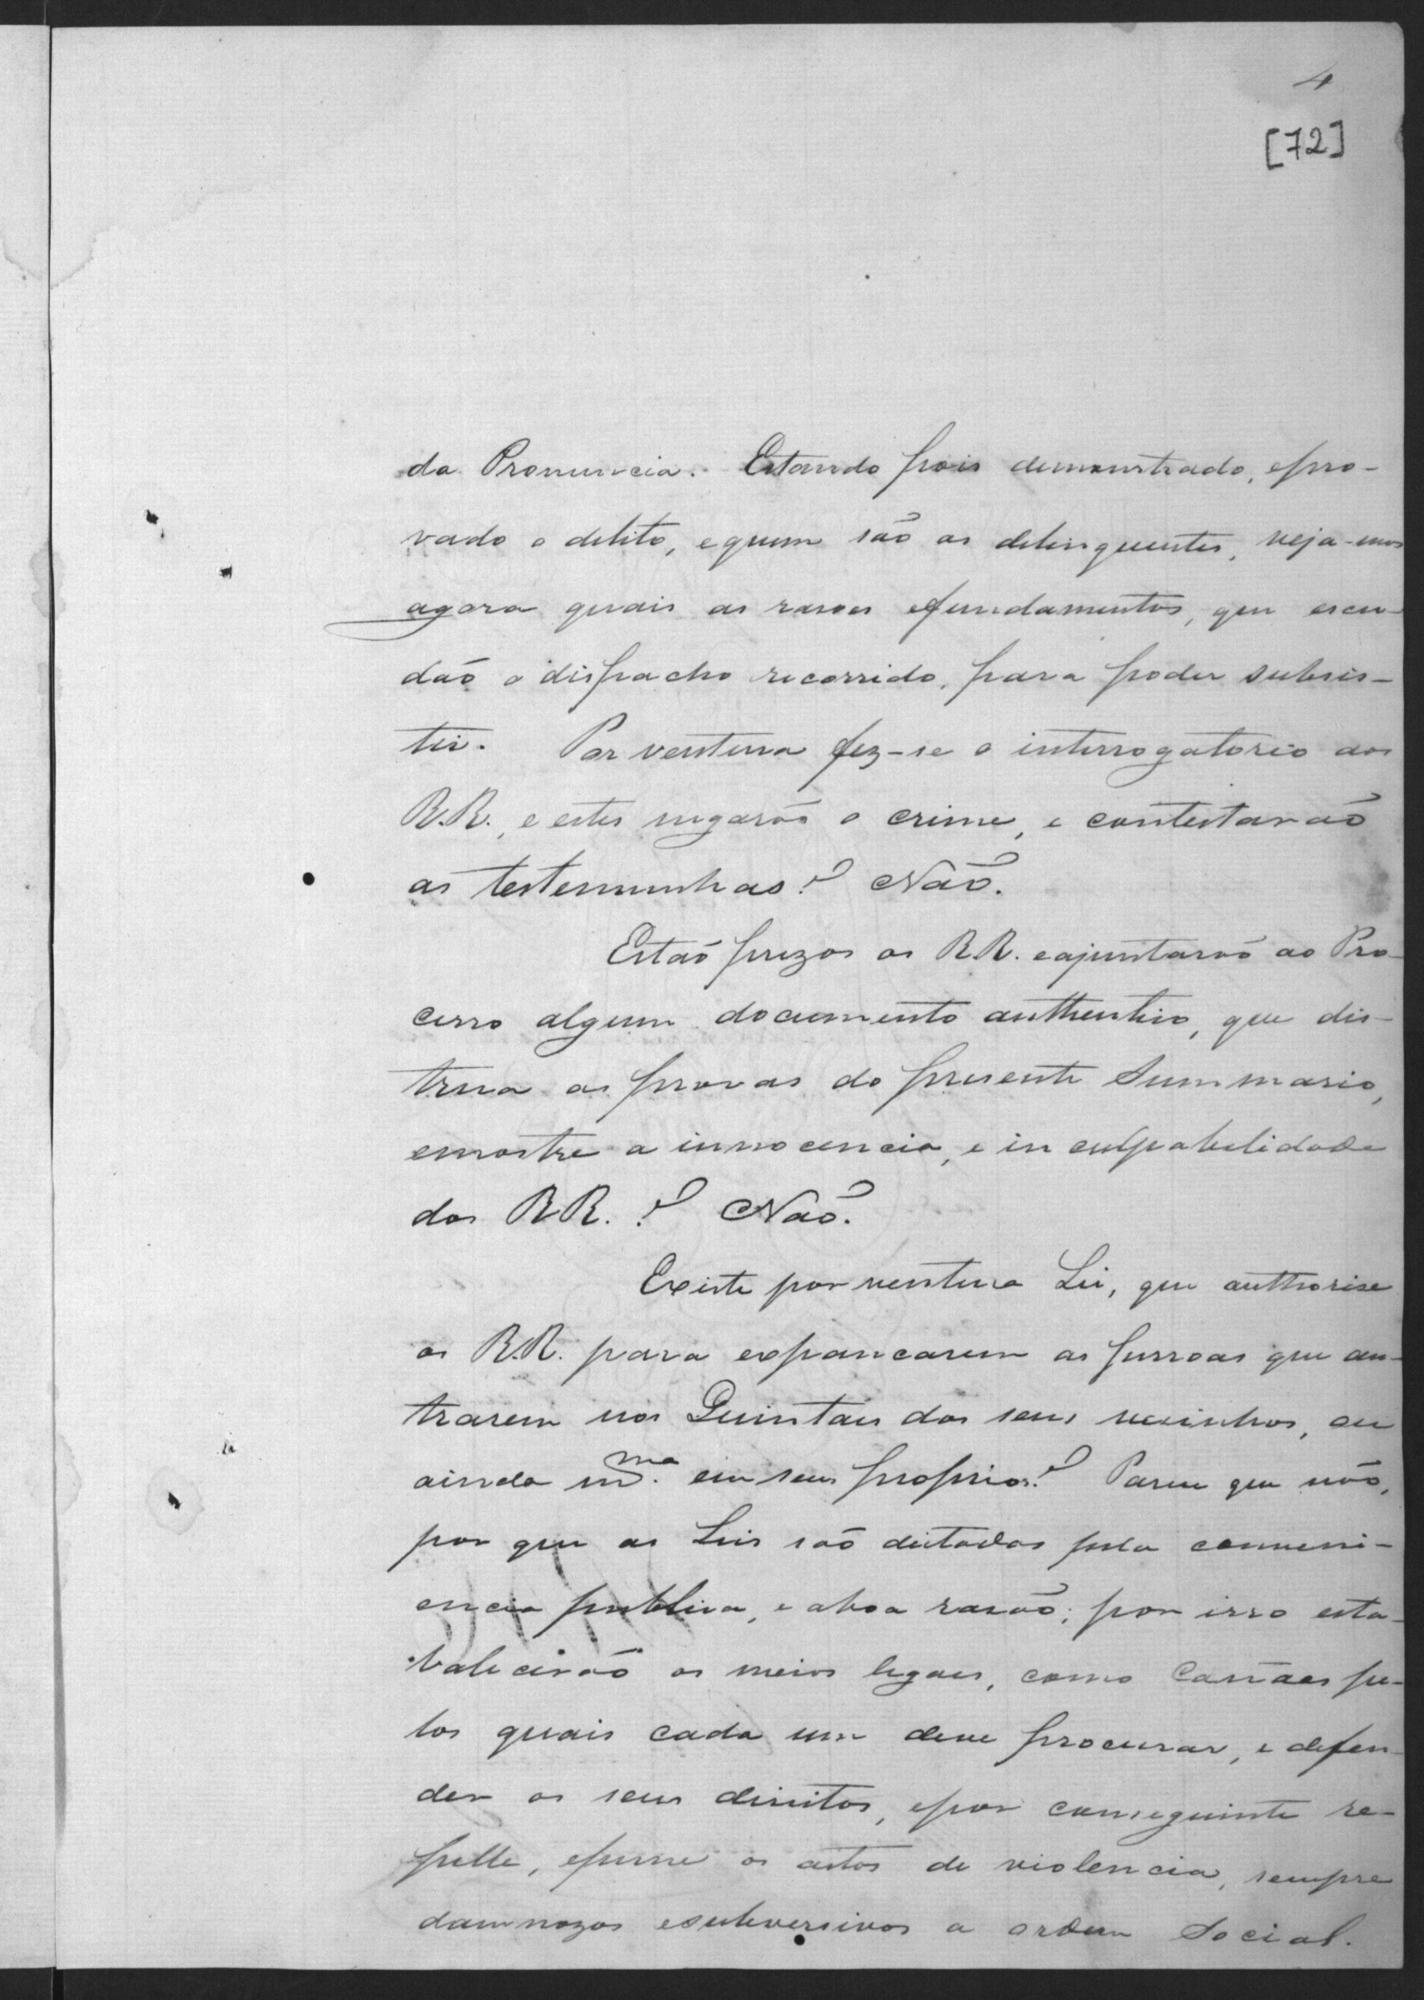 4
[72]
da Pronuncia. Estando pois demonstrado, epro-
vado o delito, equem são os delinquentes, veja-mos
agora quais as rasoes efundamentos, que escu-
daõ o dispacho recorrido, para poder subsis-
tir. Por ventura fez-se o interrogatorio aos
R.R., e estes negaraõ o crime, e contestaraõ
as testemunhas? Naõ.
Estaõ prezos os RR. eajuntaraõ ao Pro-
cesso algum documento authentico, que dis-
trua as provas do presente Summario,
emostre a innocencia, e inculpabelidade
dos RR.? Naõ.
Existe por ventura Lei, que authorise
os R.R. para expancarem as pessoas que en-
trarem nos Quintaes dos seus vesinhos, ou
ainda m.ma em seus proprios? Parece que não,
por que as Leis saõ dictadas pela conveni-
encia publica, e aboa rasaõ; por isso esta-
baleceraõ os meios legaes, como Canaes pe-
los quais cada um deve procurar, e defen-
der os seus direitos, epor conseguinte re-
pelle, epune os actos de violencia, sempre
damnozos esubversivos a ordem Social.